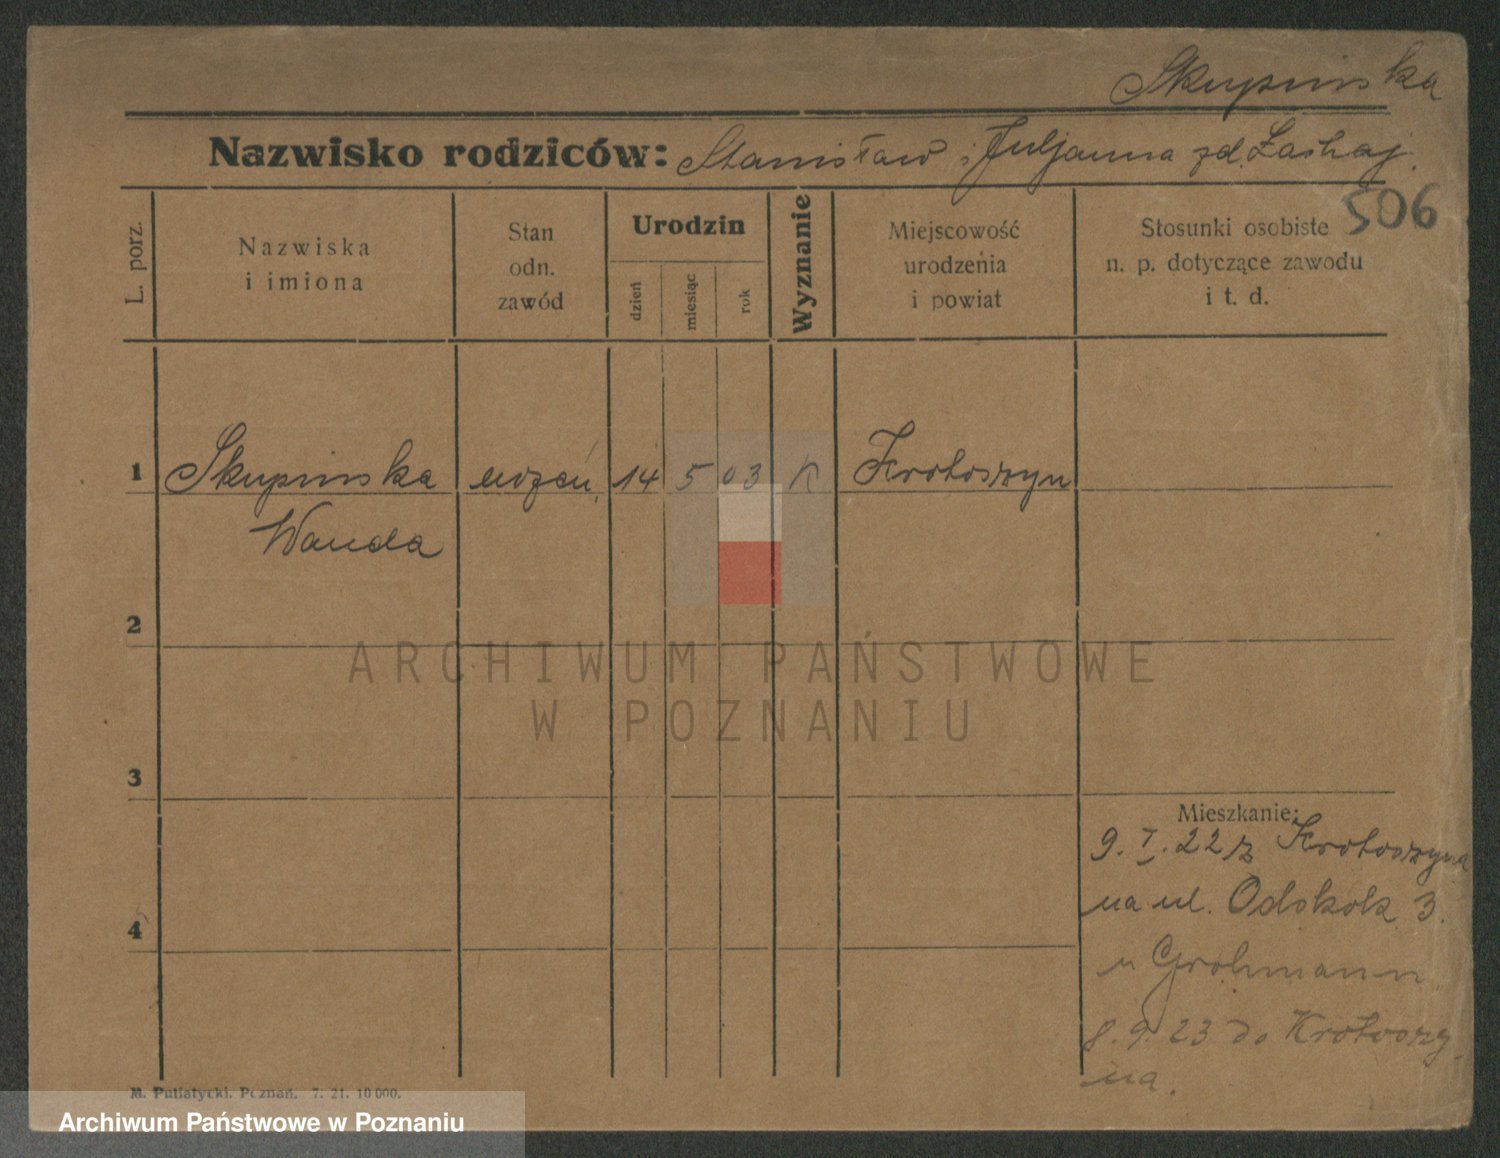 Skupinska
Nazwisko rodziców: Stanisław i Juljanna zd.
506
L. porz.
Nazwiska
i imiona
Stan
odn.
zawód
Urodzin
dzień
miesiąc
rok
Wyznanie
Miejscowość
urodzenia
i powiat
Stosunki osobiste
n. p. dotyczące zawodu
i t. d.
1 Skupinska 14 5 03 K Krotoszyn
Wanda
2
3
4
Mieszkanie:
9. I. 22 z Krotoszyna
na ul. Odskok 3.
u Grohmann
8. 9. 23 do Krotoszy-
na.
M. Putiatycki. Poznań. 7. 21. 10 000.
ARCHIWUM PAŃSTWOWE
W POZNANIU
Archiwum Państwowe w Poznaniu